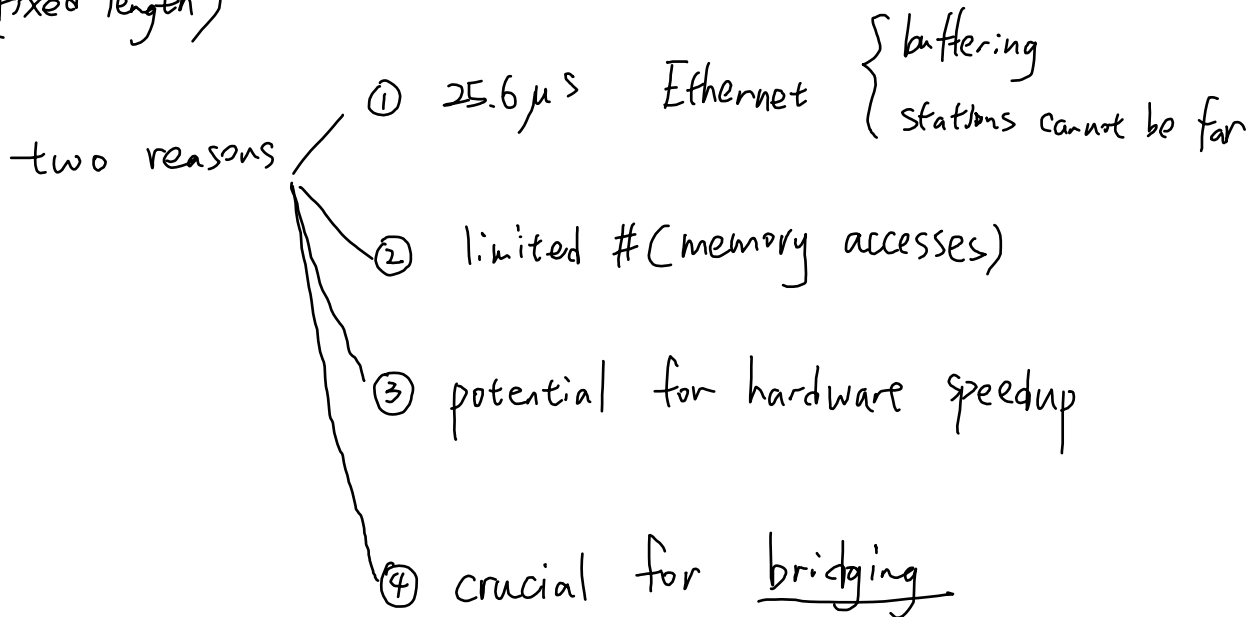 (fixed length)
two reasons
① 25.6 μs Ethernet { buffering
stations cannot be far
② limited #(memory accesses)
③ potential for hardware speedup
④ crucial for bridging